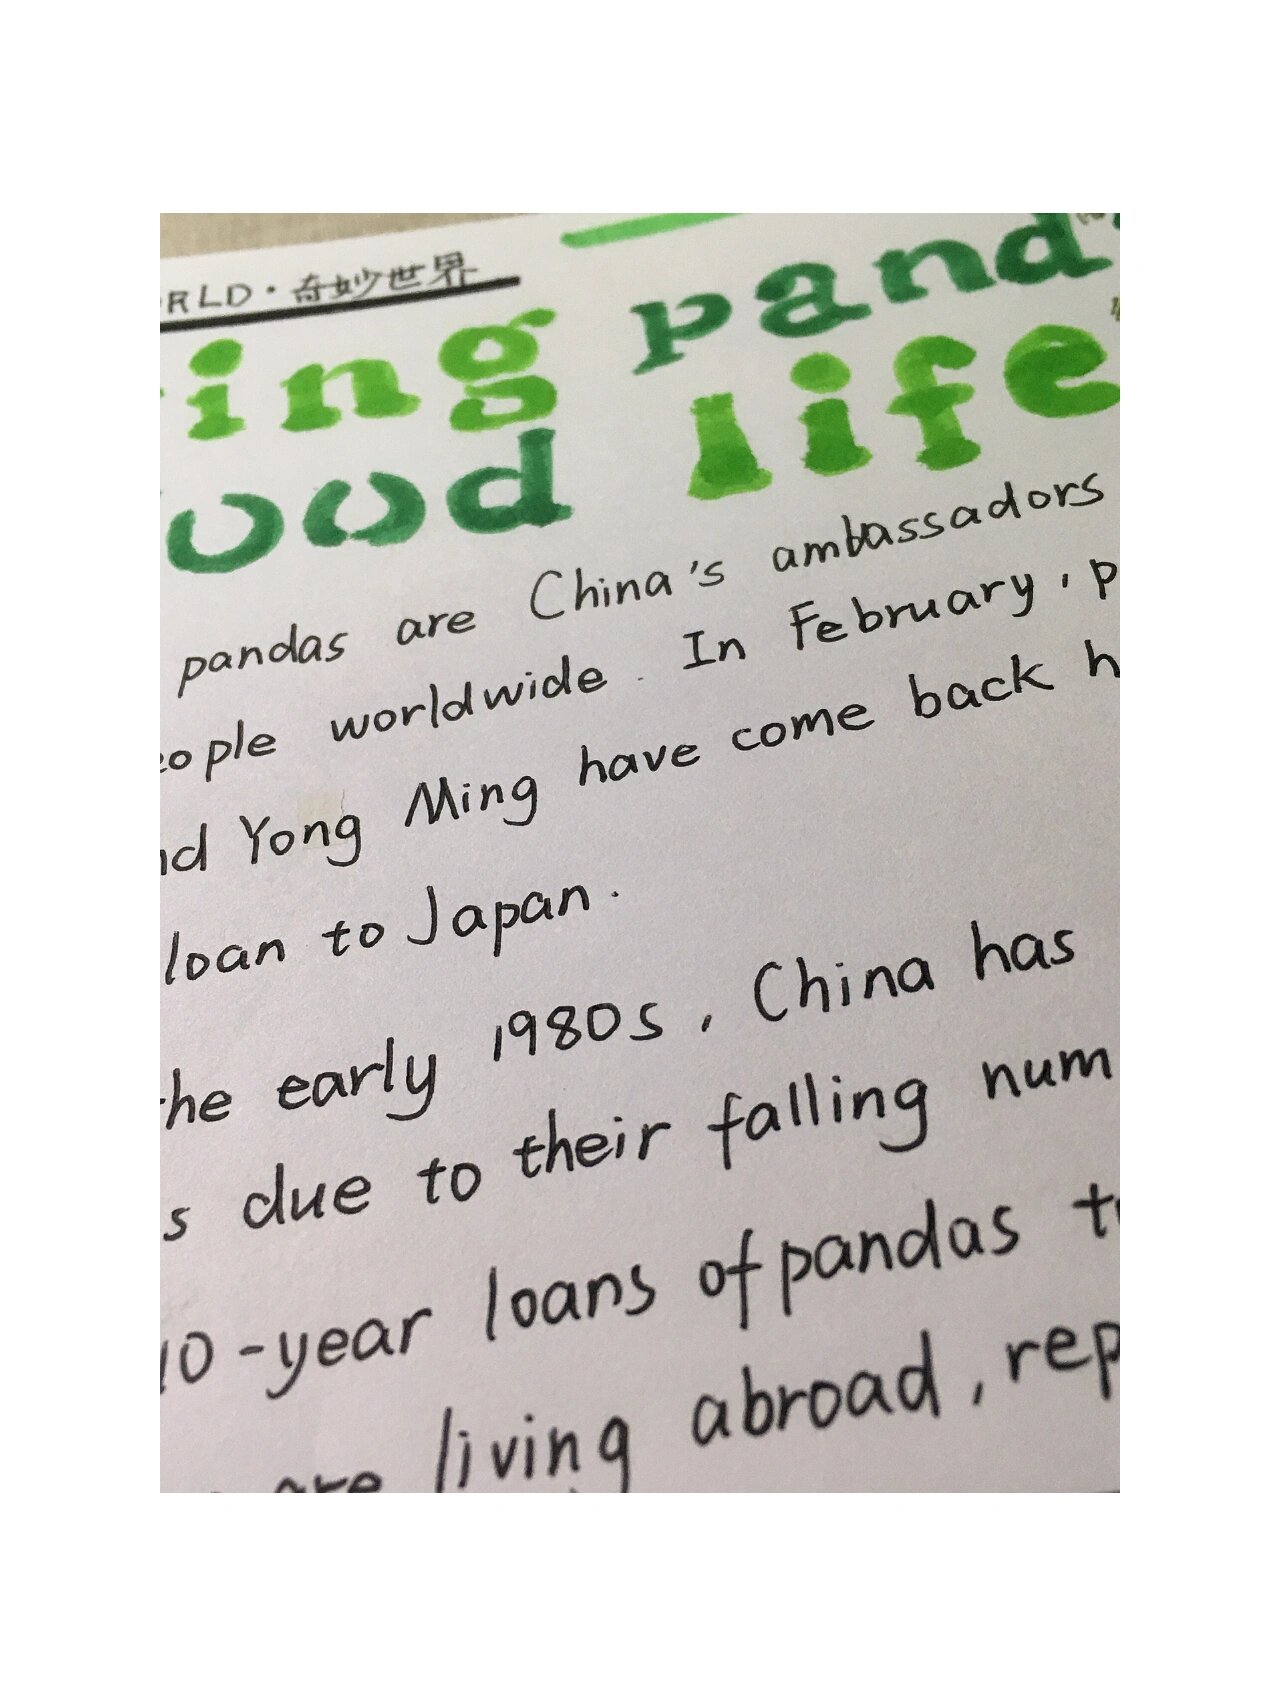 RLD·奇妙世界
ing pand
ood life
pandas are China's ambassadors
eople worldwide. In February, p
nd Yong Ming have come back h
loan to Japan.
he early 1980s, China has
s due to their falling num
10-year loans of pandas t
are living abroad, rep